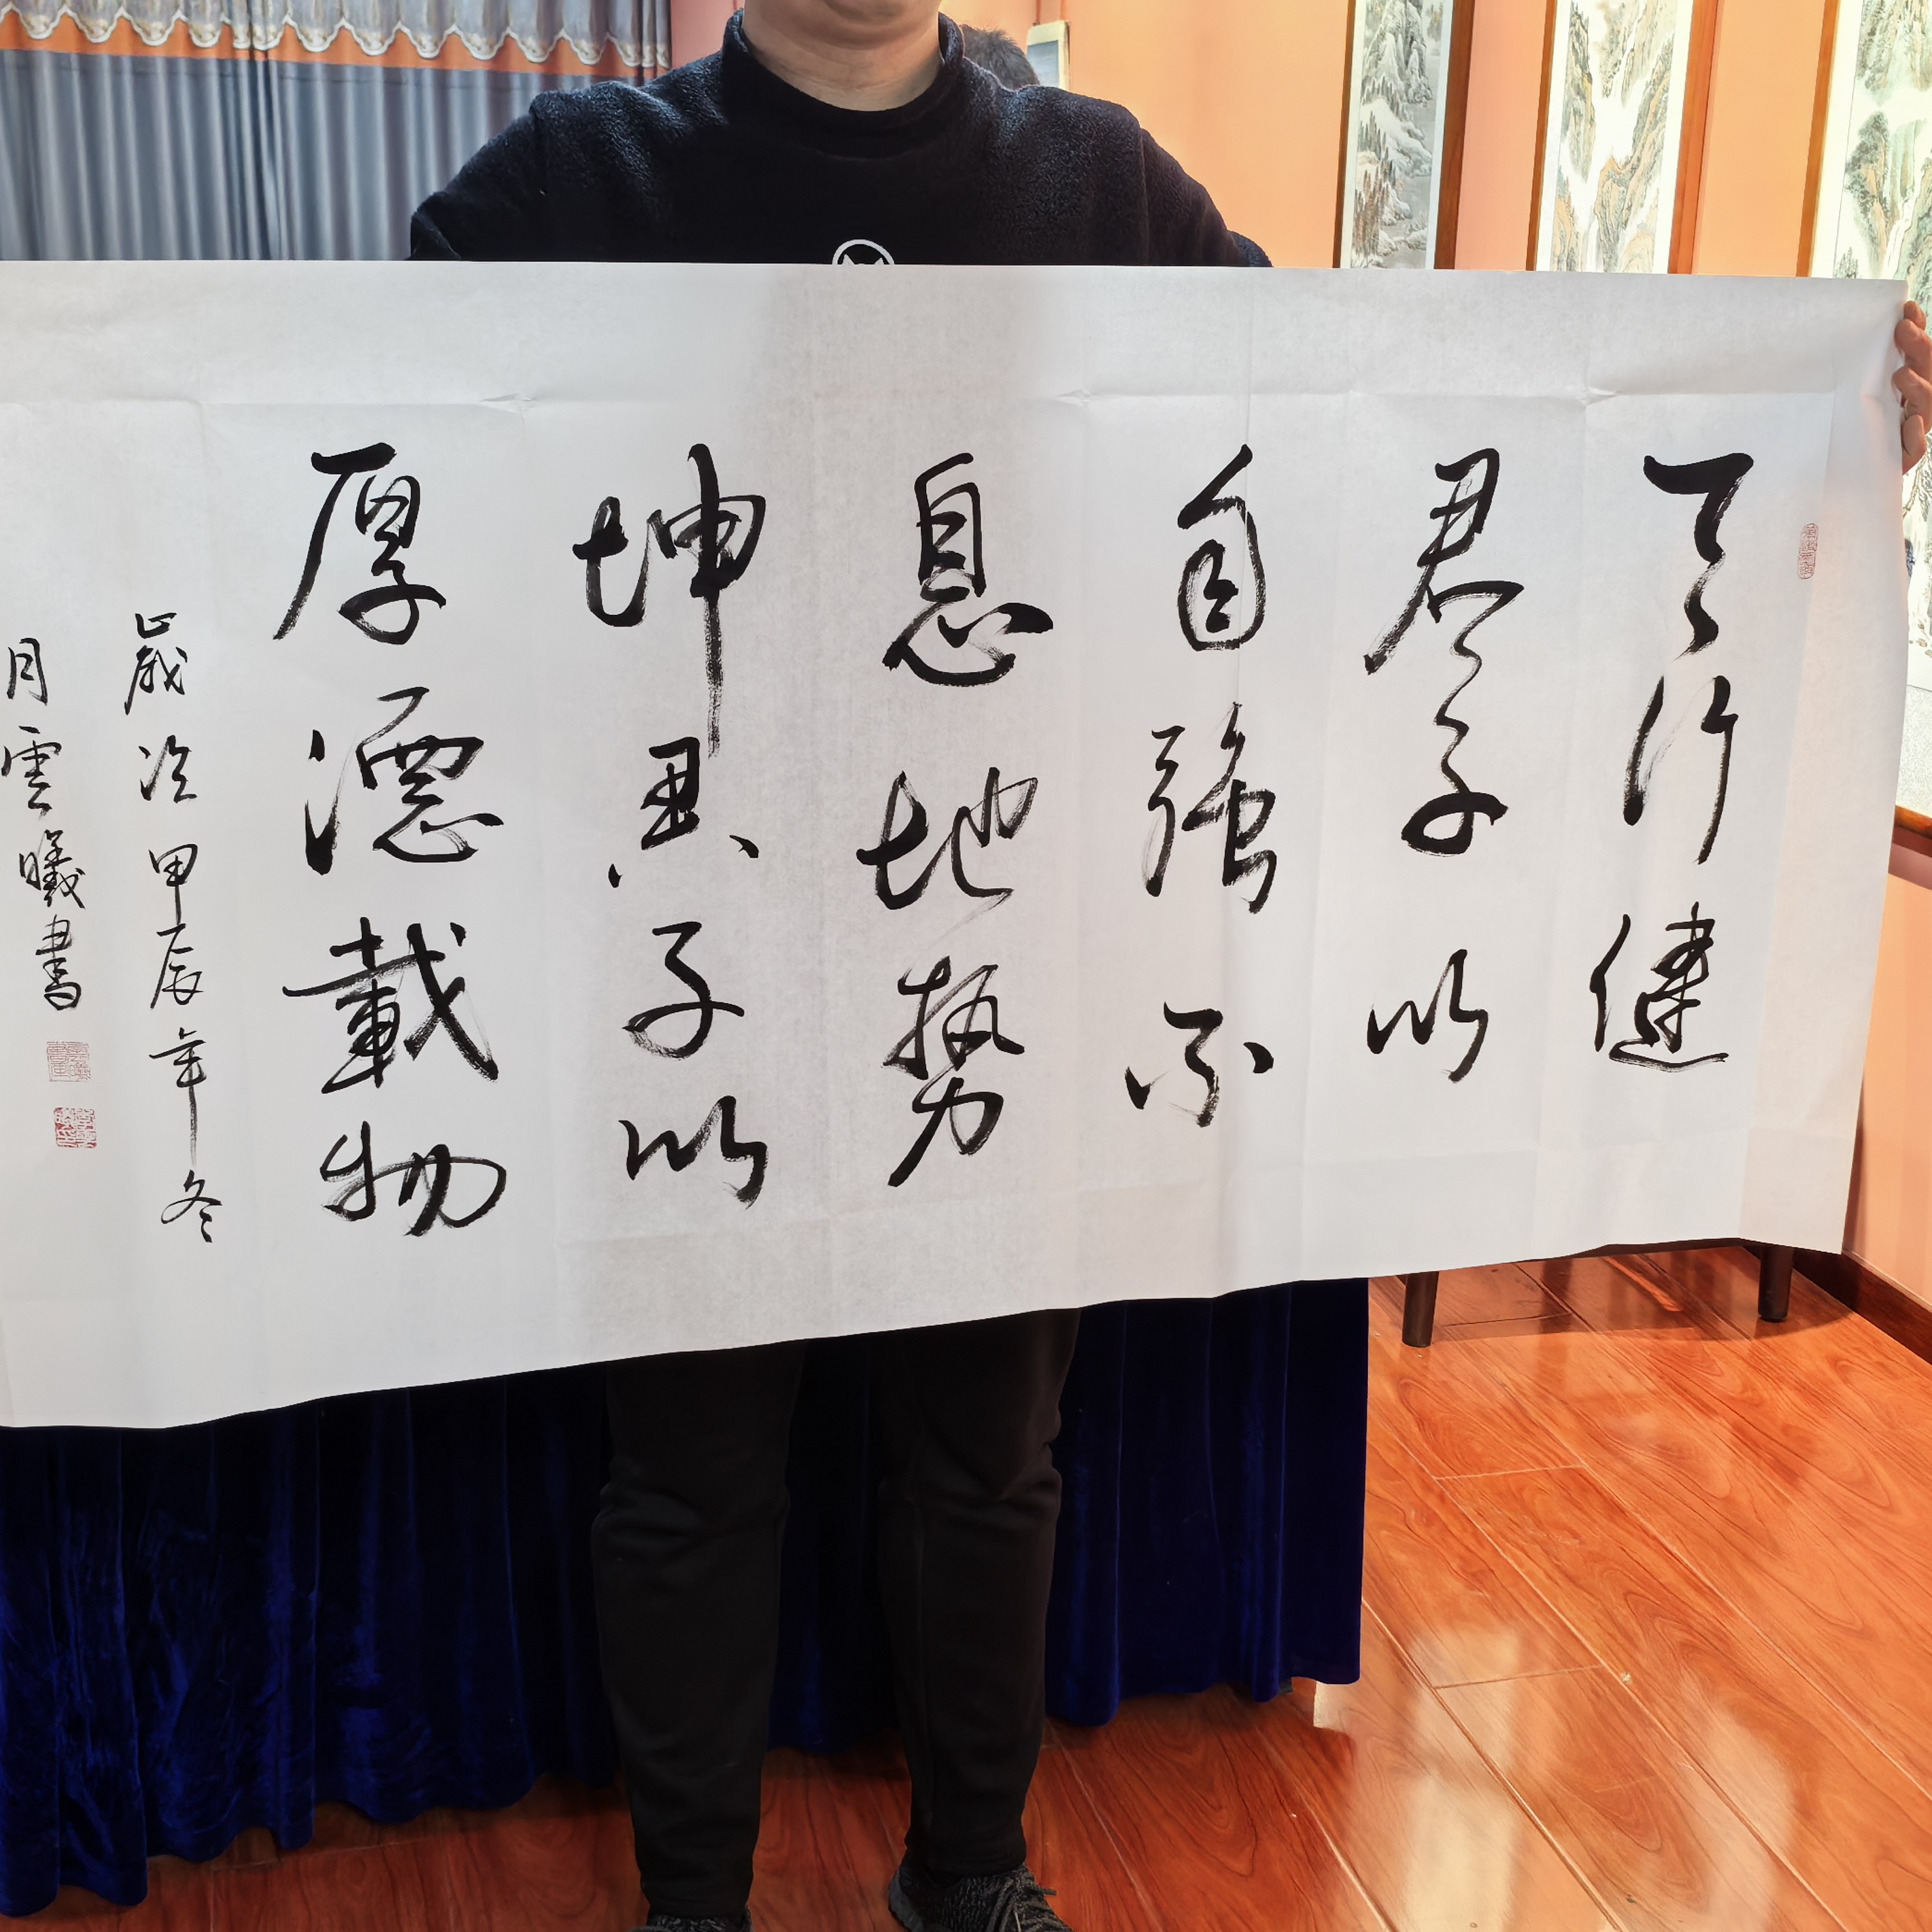 天行健
君子以
自強不
息地势
坤君子以
厚德載物
歲次甲辰年冬
月雲曦書